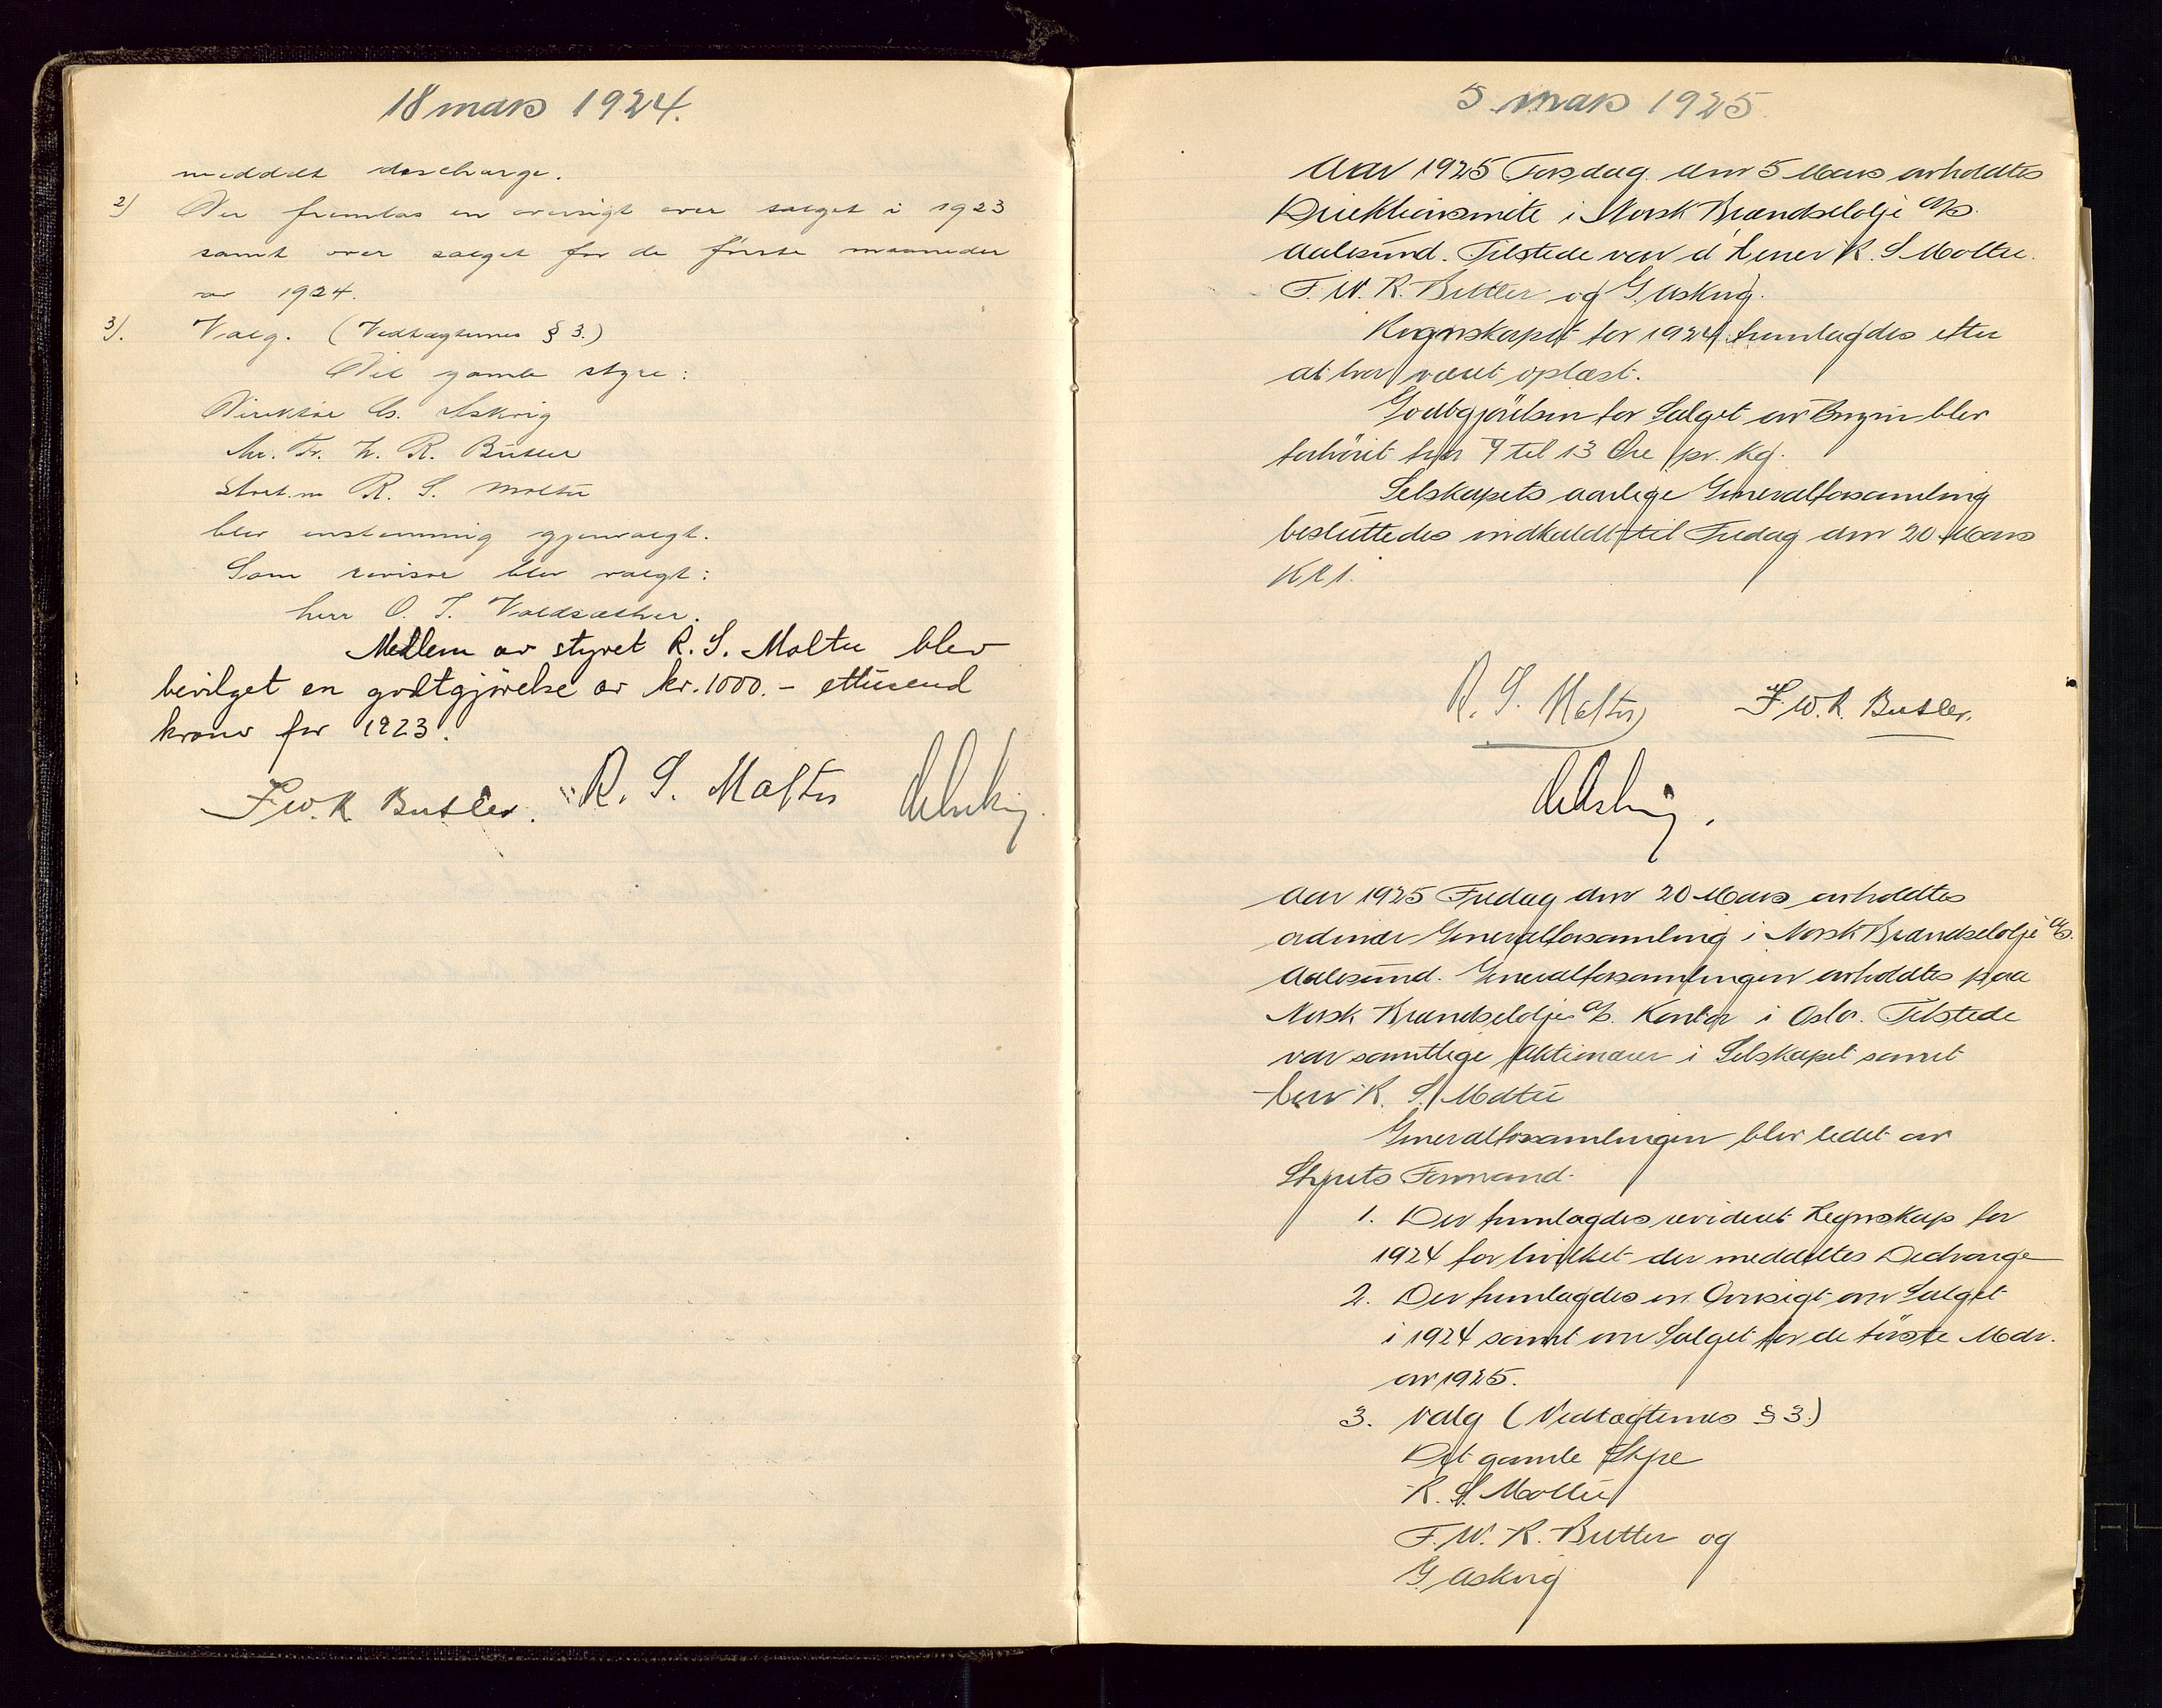 18 mars 1924.
meddelt decharge.
2) Der fremlas en oversigt over salget i 1923
samt over salget for de første maaneder
av 1924.
3). Valg. (Vedtægternes § 3.)
Det gamle styre:
Direktør G. Askvig
hr. Fr. W. R. Butler
R. S. Moltu
blev enstemmig gjenvalgt.
Som revisor blev valgt:
herr O. T. Voldsæther.
Medlem av styret R. S. Moltu blev
bevilget en godtgjørelse av kr. 1000.- ettusend
kroner for 1923.
F. W. R. Butler. R. S. Moltu G Askvig
5 mars 1925.
Aar 1925 Torsdag den 5 Mars avholdtes
Direktionsmøte i Norsk Brændselolje A/S.
Aalesund. Tilstede var d'herrer R. S Moltu.
F. W. R. Butler og G. Askvig.
Regnskapet for 1924 fremlagdes efter
at hav været oplæst.
Godtgjörelsen for Salget av Benzin blev
forhöiet fra 9 til 13 Øre pr. kg.
Selskapets aarlige Generalforsamling
besluttedes indkaldt til Fredag den 20 Mars
Kl 1.
R. S. Moltu F. W. R. Butler.
G Askvig.
Aar 1925 Fredag den 20 Mars avholdtes
ordinær Generalforsamling i Norsk Brændselolje A/S.
Aalesund. Generalforsamlingen avholdtes paa
Norsk Brændseloljes A/S. Kontor i Oslo. Tilstede
var samtlige Aktionærer i Selskapet samt
herr R. S. Moltu
Generalforsamlingen blev ledet av
Styrets Formand.
1. Der fremlagdes revideret Regnskap for
1924 for hvilket der meddeltes Decharge
2. Der fremlagdes en Oversigt over Salget
i 1924 samt over Salget for de første Mdr.
av 1925.
3. Valg (Vedtægternes § 3.)
Det gamle Styre
R. S. Moltu
F. W. R. Butler og
G Askvig